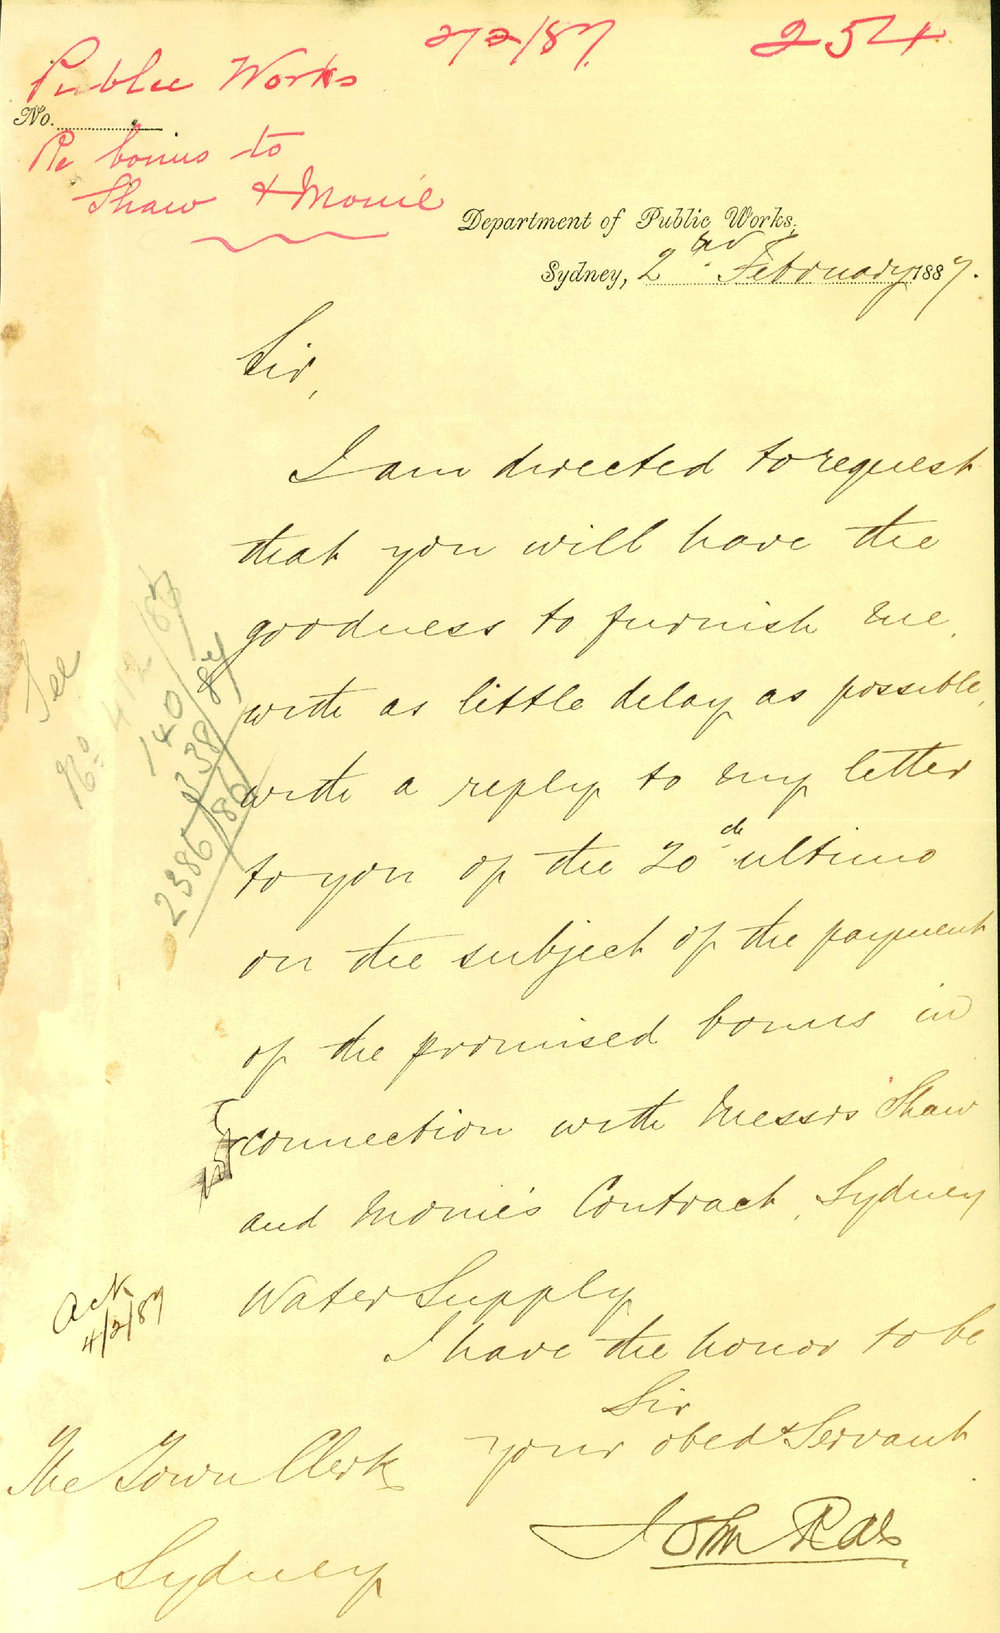 2/2/87. 254
Public Works
No.
Re bonus to
Shaw & Monie
Department of Public Works,
Sydney, 2nd February 1887.
Sir,
I am directed to request
that you will have the
goodness to furnish me,
with as little delay as possible,
with a reply to my letter
to you of the 20th ultimo
on the subject of the payment
of the promised bonus in
connection with Messrs Shaw
and Monie's Contract, Sydney
Water Supply
I have the honor to be
Sir
your obedt Servant
John Rae
The Town Clerk
Sydney
See
No. 412/87
140/87
238/87
2386/86
Ack
4/2/87